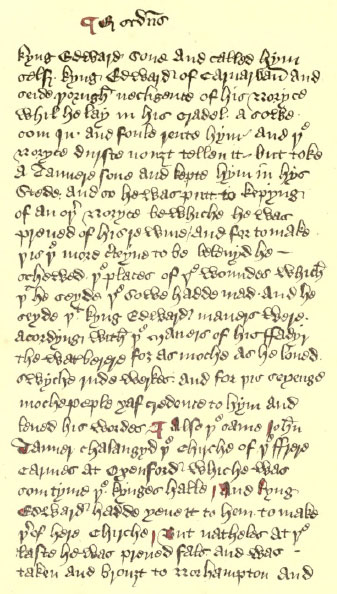 ¶ E scd͛us
kyng Edward sone And called hym
self kyng Edward of Carnarvan and
seide þorugh necligence of his noryce
whil he lay in his cradel A sowe
com in And foule rente hym And þe
noryce durste nouȝt tellen it but toke
A Tannere sone and kepte hym in hys
stede And so he was putt to kepyng
of an oþr noryce be whiche he was
preued of his rewme And for to make
þis þe more lleyne to be beleuyd he
schewed þe places of þe woundes which
þt he seyde þe sowe hadde mad And he
seyde þt kyng Edward maners were
acordyng with þe maners of his ffadyr
the waterere for as moche as he loued
swyche rude werkes And for þis seyenge
moche peple yaf credence to hym and
leued his wordes ¶ Also þe same John
Tanner chalangyd þe chirche of þe ffrere
Carmes at Oxenford whiche was
somtyme þe kynges halle And kyng
Edward hadde yeue it to hem to make
þer of here chirche But natheles at þe
laste he was preued fals and was
taken and brouȝt to Norhampton and